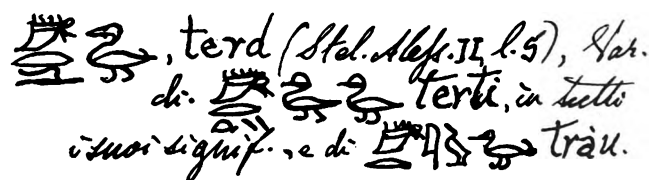 , terd (Stel. Aless. II, l. 5), Var.
di terti, in tutti
i suoi signif., e di tràu.